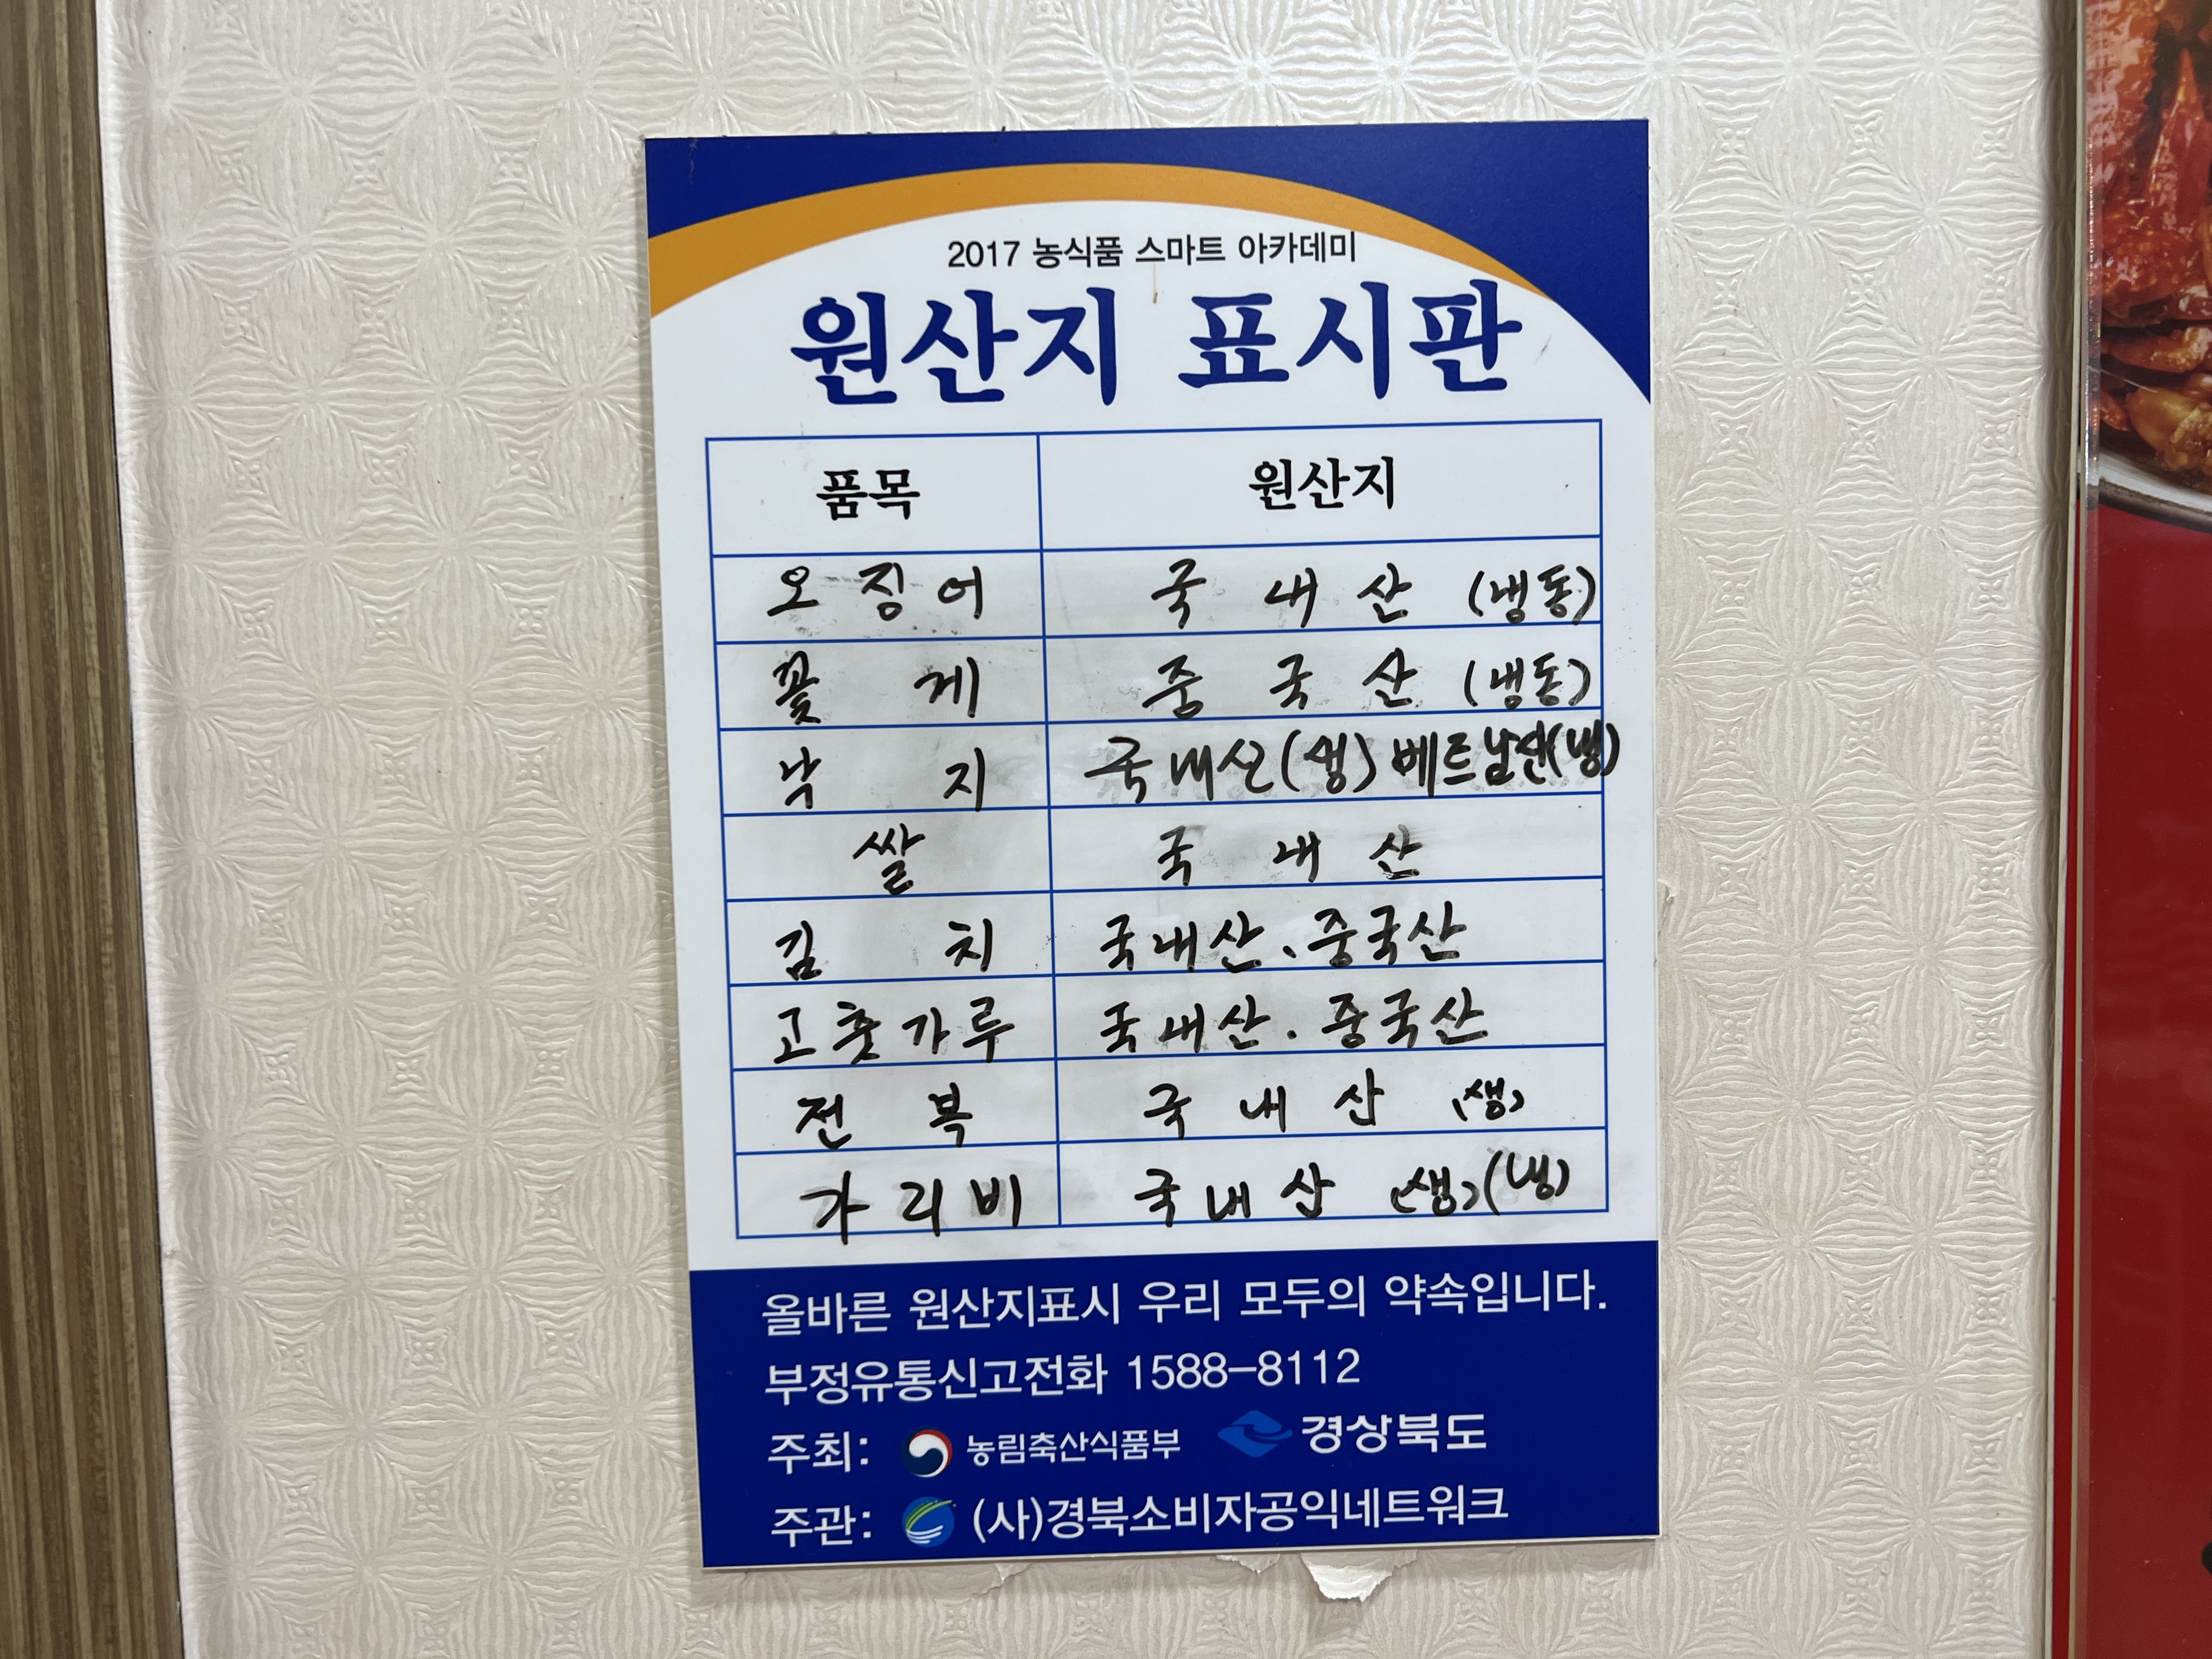 2017 농식품 스마트 아카데미
원산지 표시판
품목 원산지
오징어 국내산 (냉동)
꽃게 중국산 (냉동)
낙지 국내산(생) 베트남산(냉)
쌀 국내산
김치 국내산.중국산
고춧가루 국내산.중국산
전복 국내산 (생)
가리비 국내산 (생)(냉)
올바른 원산지표시 우리 모두의 약속입니다.
부정유통신고전화 1588-8112
주최: 농림축산식품부 경상북도
주관: (사)경북소비자공익네트워크